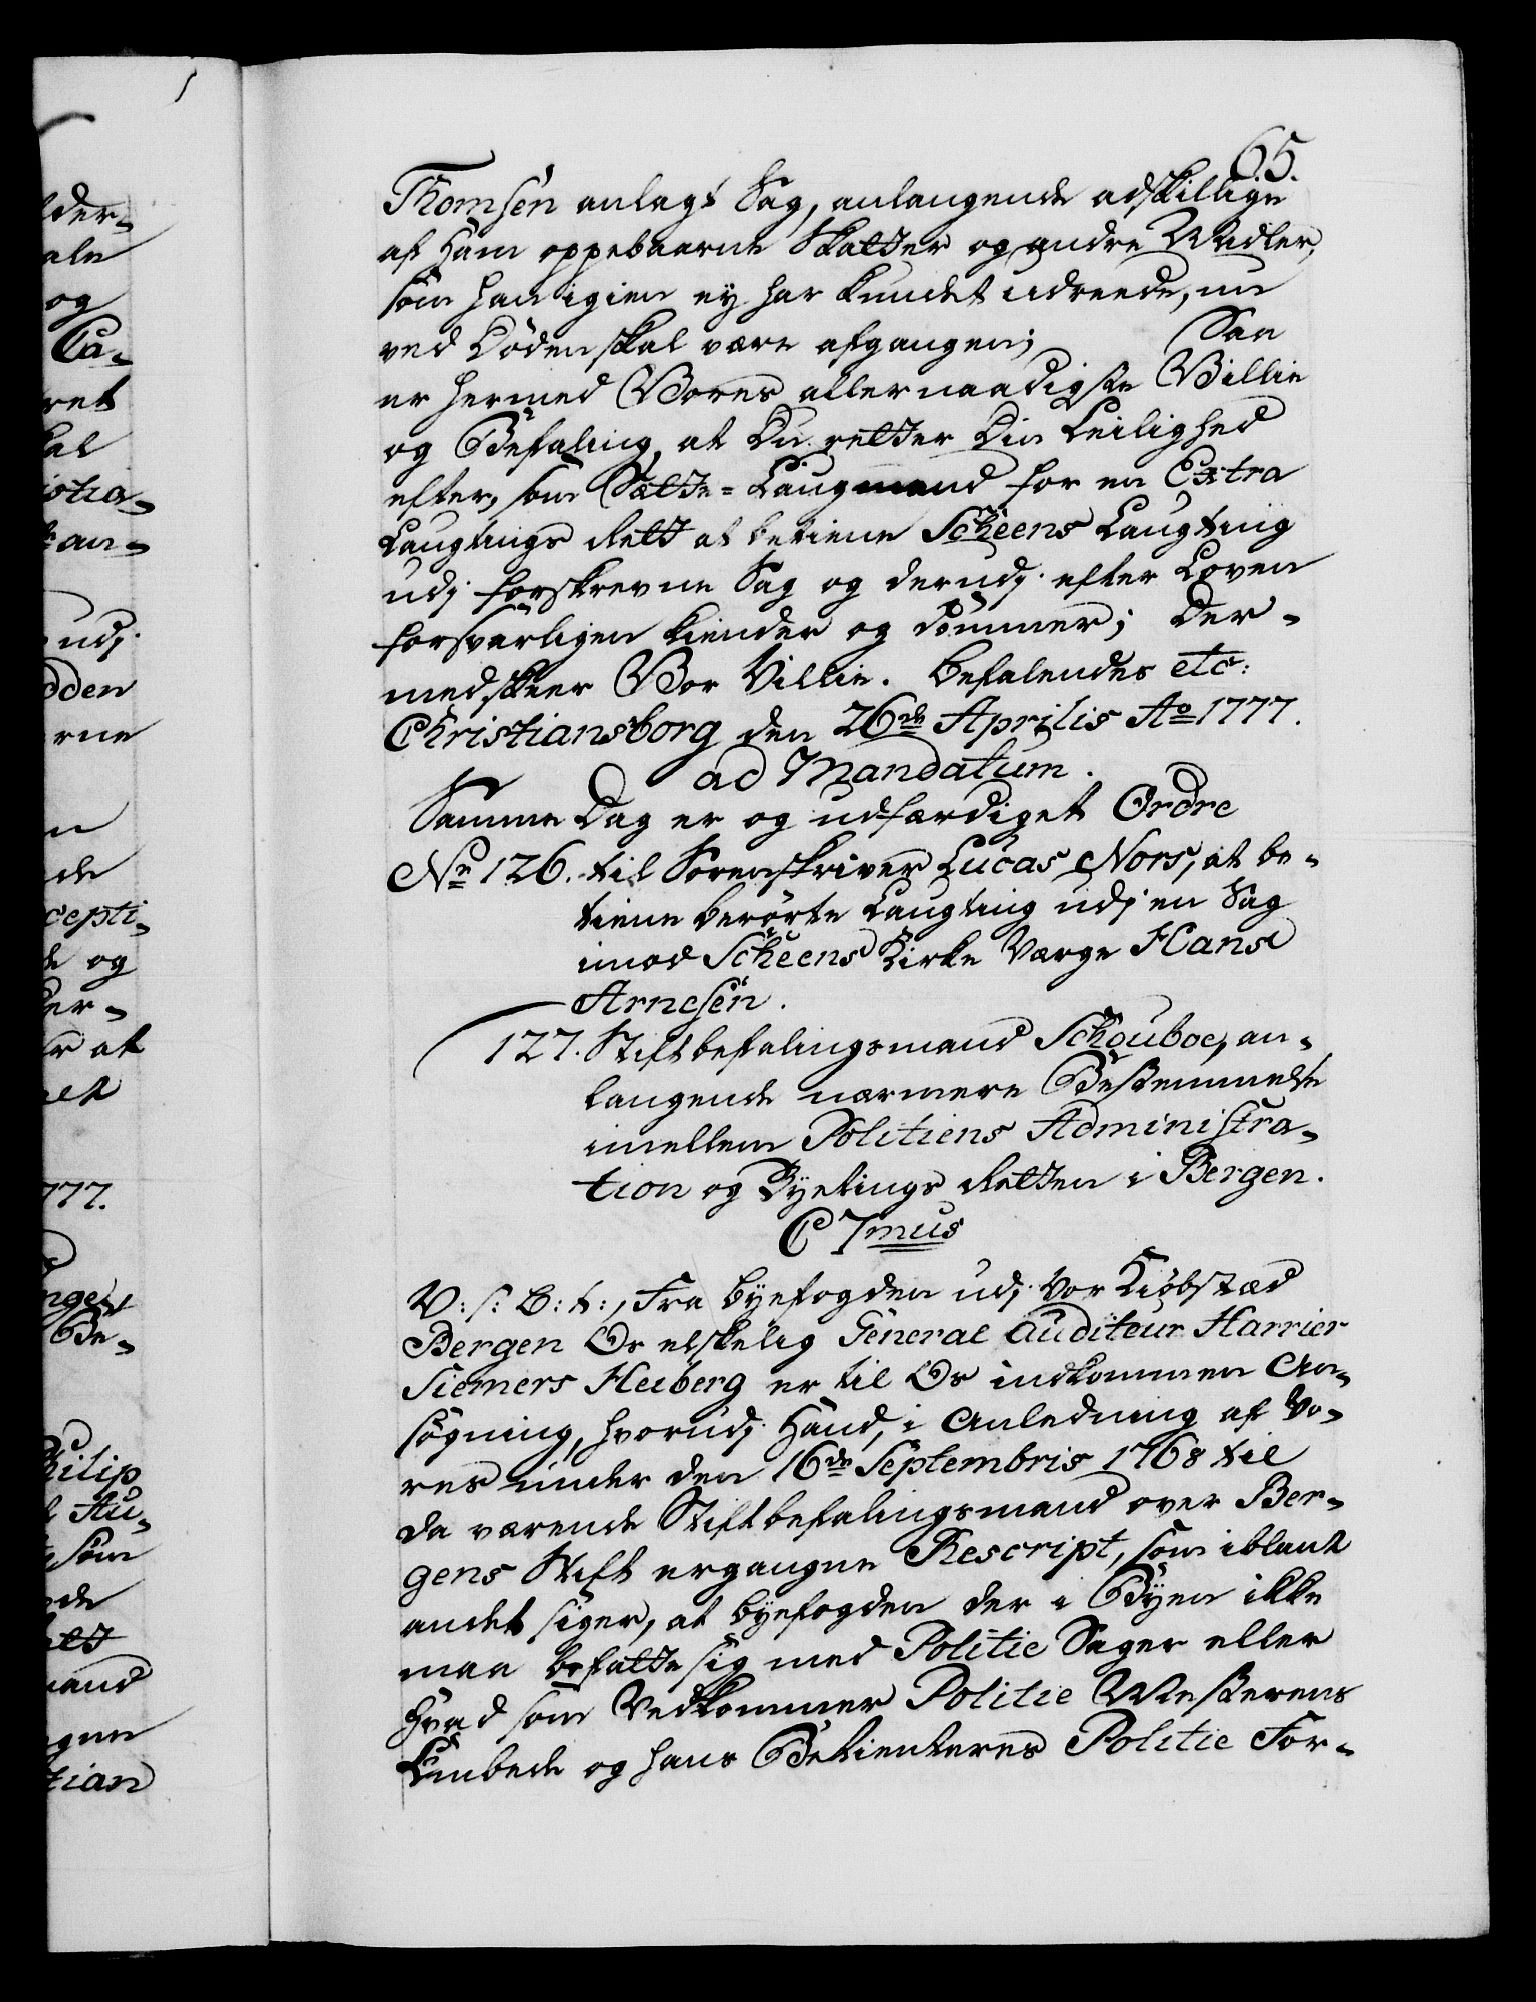 65.
Thomsen anlagt Sag, anlangende adskillige
af Ham oppebaarne Skatter og andre Midler,
som han igien ey har kundet udreede, nu
ved Døden skal være afgangen; Saa
er hermed Vores allernaadigste Villie
og Befaling, at Du retter Din Leilighed
efter, som Sætte-Laugmand for en Extra
Laugtings Rett at betiene Scheens Laugting
udj forskrevne Sag og derudj efter Loven
forsvarligen kiender og dømmer; Der-
med skeer Vor Villie. Befalendes etc:
Christiansborg den 26de Aprilis Ao 1777.
ad Mandatum.
Samme Dag er og udfærdiget Ordre
No 126. til Sorenskriver Lucas Nors, at be-
tiene berørte Laugting udj en Sag
imod Scheens Kirke Værge Hans
Arnesen.
127. Stiftbefalingsmand Schouboe, an-
langende nærmere Bestemmelse
imellem Politiens Administra-
tion og Byetings Retten i Bergen.
C 7mus
V: s: G: t:, Fra byefogden udj Vor Kiøbstæd
Bergen Os elskelig General Auditeur Harrier
Siemers Heiberg er til Os indkommen An-
søgning, hvorudj Hand, i Anledning af Vo-
res under den 16de Septembris 1768 til
da værende Stiftbefalingsmand over Ber-
gens Stift ergangne Rescript, som iblant
andet siger, at byefogden der i Byen ikke
maa befatte sig med Politie Sager eller
hvad som Vedkommer Politie Mesterens
Embede og hans Betienteres Politie For-
lder-
ale
og
Ca-
ret
kal
istia-
an-
udj
dden
rne
n
de
cepti-
de og
Der-
r at
777.
Be-
hilip
Au-
som
de
ett
mand
gen
tian